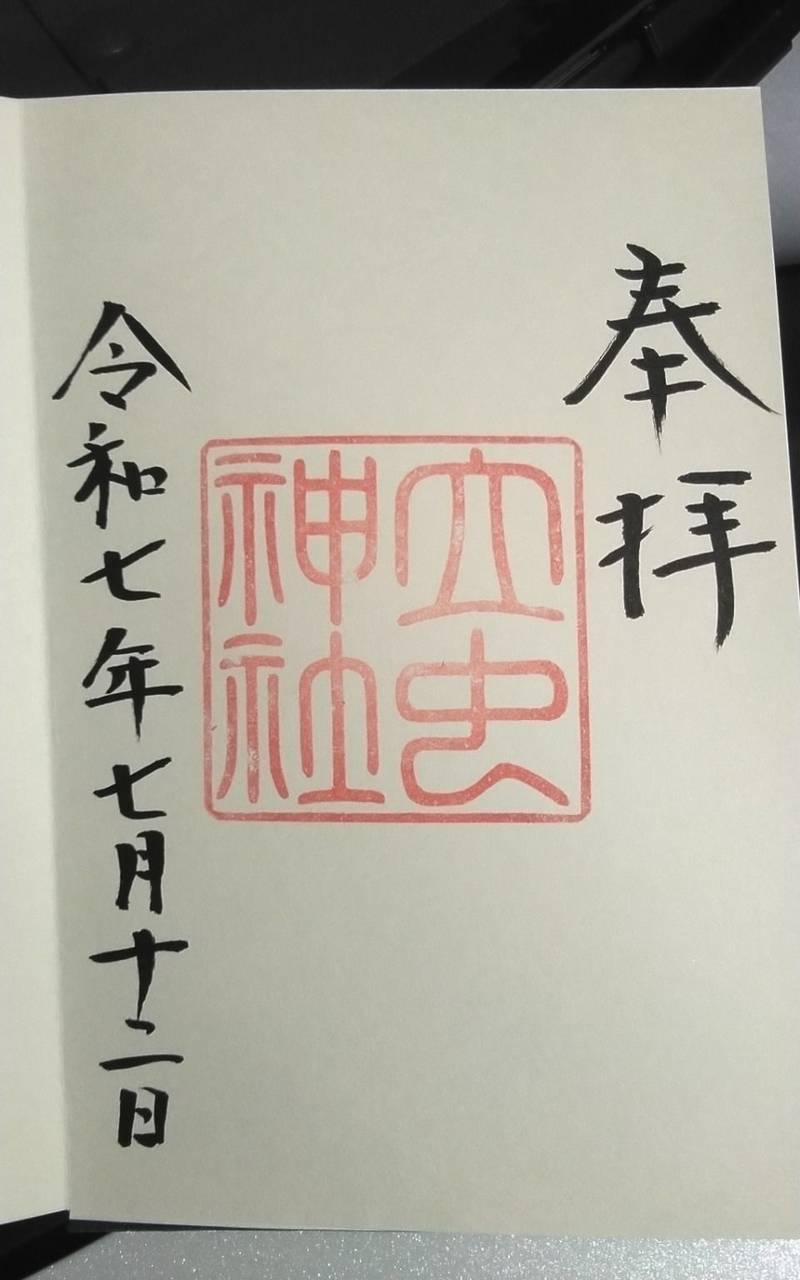 奉拝
立虫
神社
令和七年七月十二日